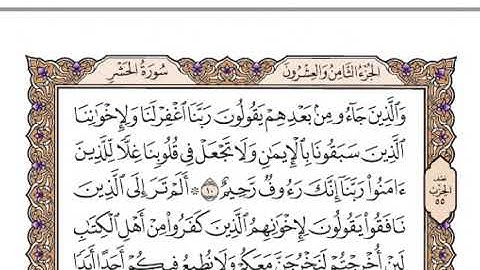 سُورَةُ الْحَشْرِ الجُزْءُ الثَّامِنُ وَالعِشْرُونَ
وَالَّذِينَ جَاءُو مِنْ بَعْدِهِمْ يَقُولُونَ رَبَّنَا اغْفِرْ لَنَا وَلِإِخْوَانِنَا
الَّذِينَ سَبَقُونَا بِالْإِيمَٰنِ وَلَا تَجْعَلْ فِي قُلُوبِنَا غِلًّا لِّلَّذِينَ
ءَامَنُوا رَبَّنَا إِنَّكَ رَءُوفٌ رَّحِيمٌ ١٠ ۞ أَلَمْ تَرَ إِلَى الَّذِينَ
نَافَقُوا يَقُولُونَ لِإِخْوَانِهِمُ الَّذِينَ كَفَرُوا مِنْ أَهْلِ الْكِتَٰبِ
لَئِنْ أُخْرِجْتُمْ لَنَخْرُجَنَّ مَعَكُمْ وَلَا نُطِيعُ فِيكُمْ أَحَدًا أَبَدًا
نصف
الحزب
٥٥